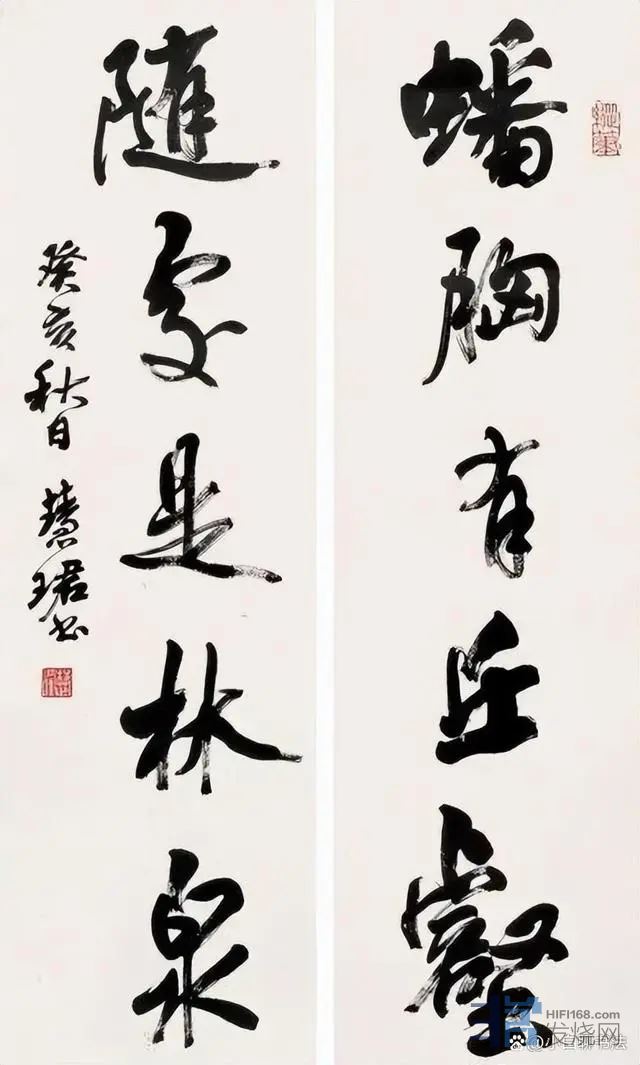 蟠胸有丘壑
随處是林泉
癸亥秋日 慧珺書
HIFI168.com
发烧网